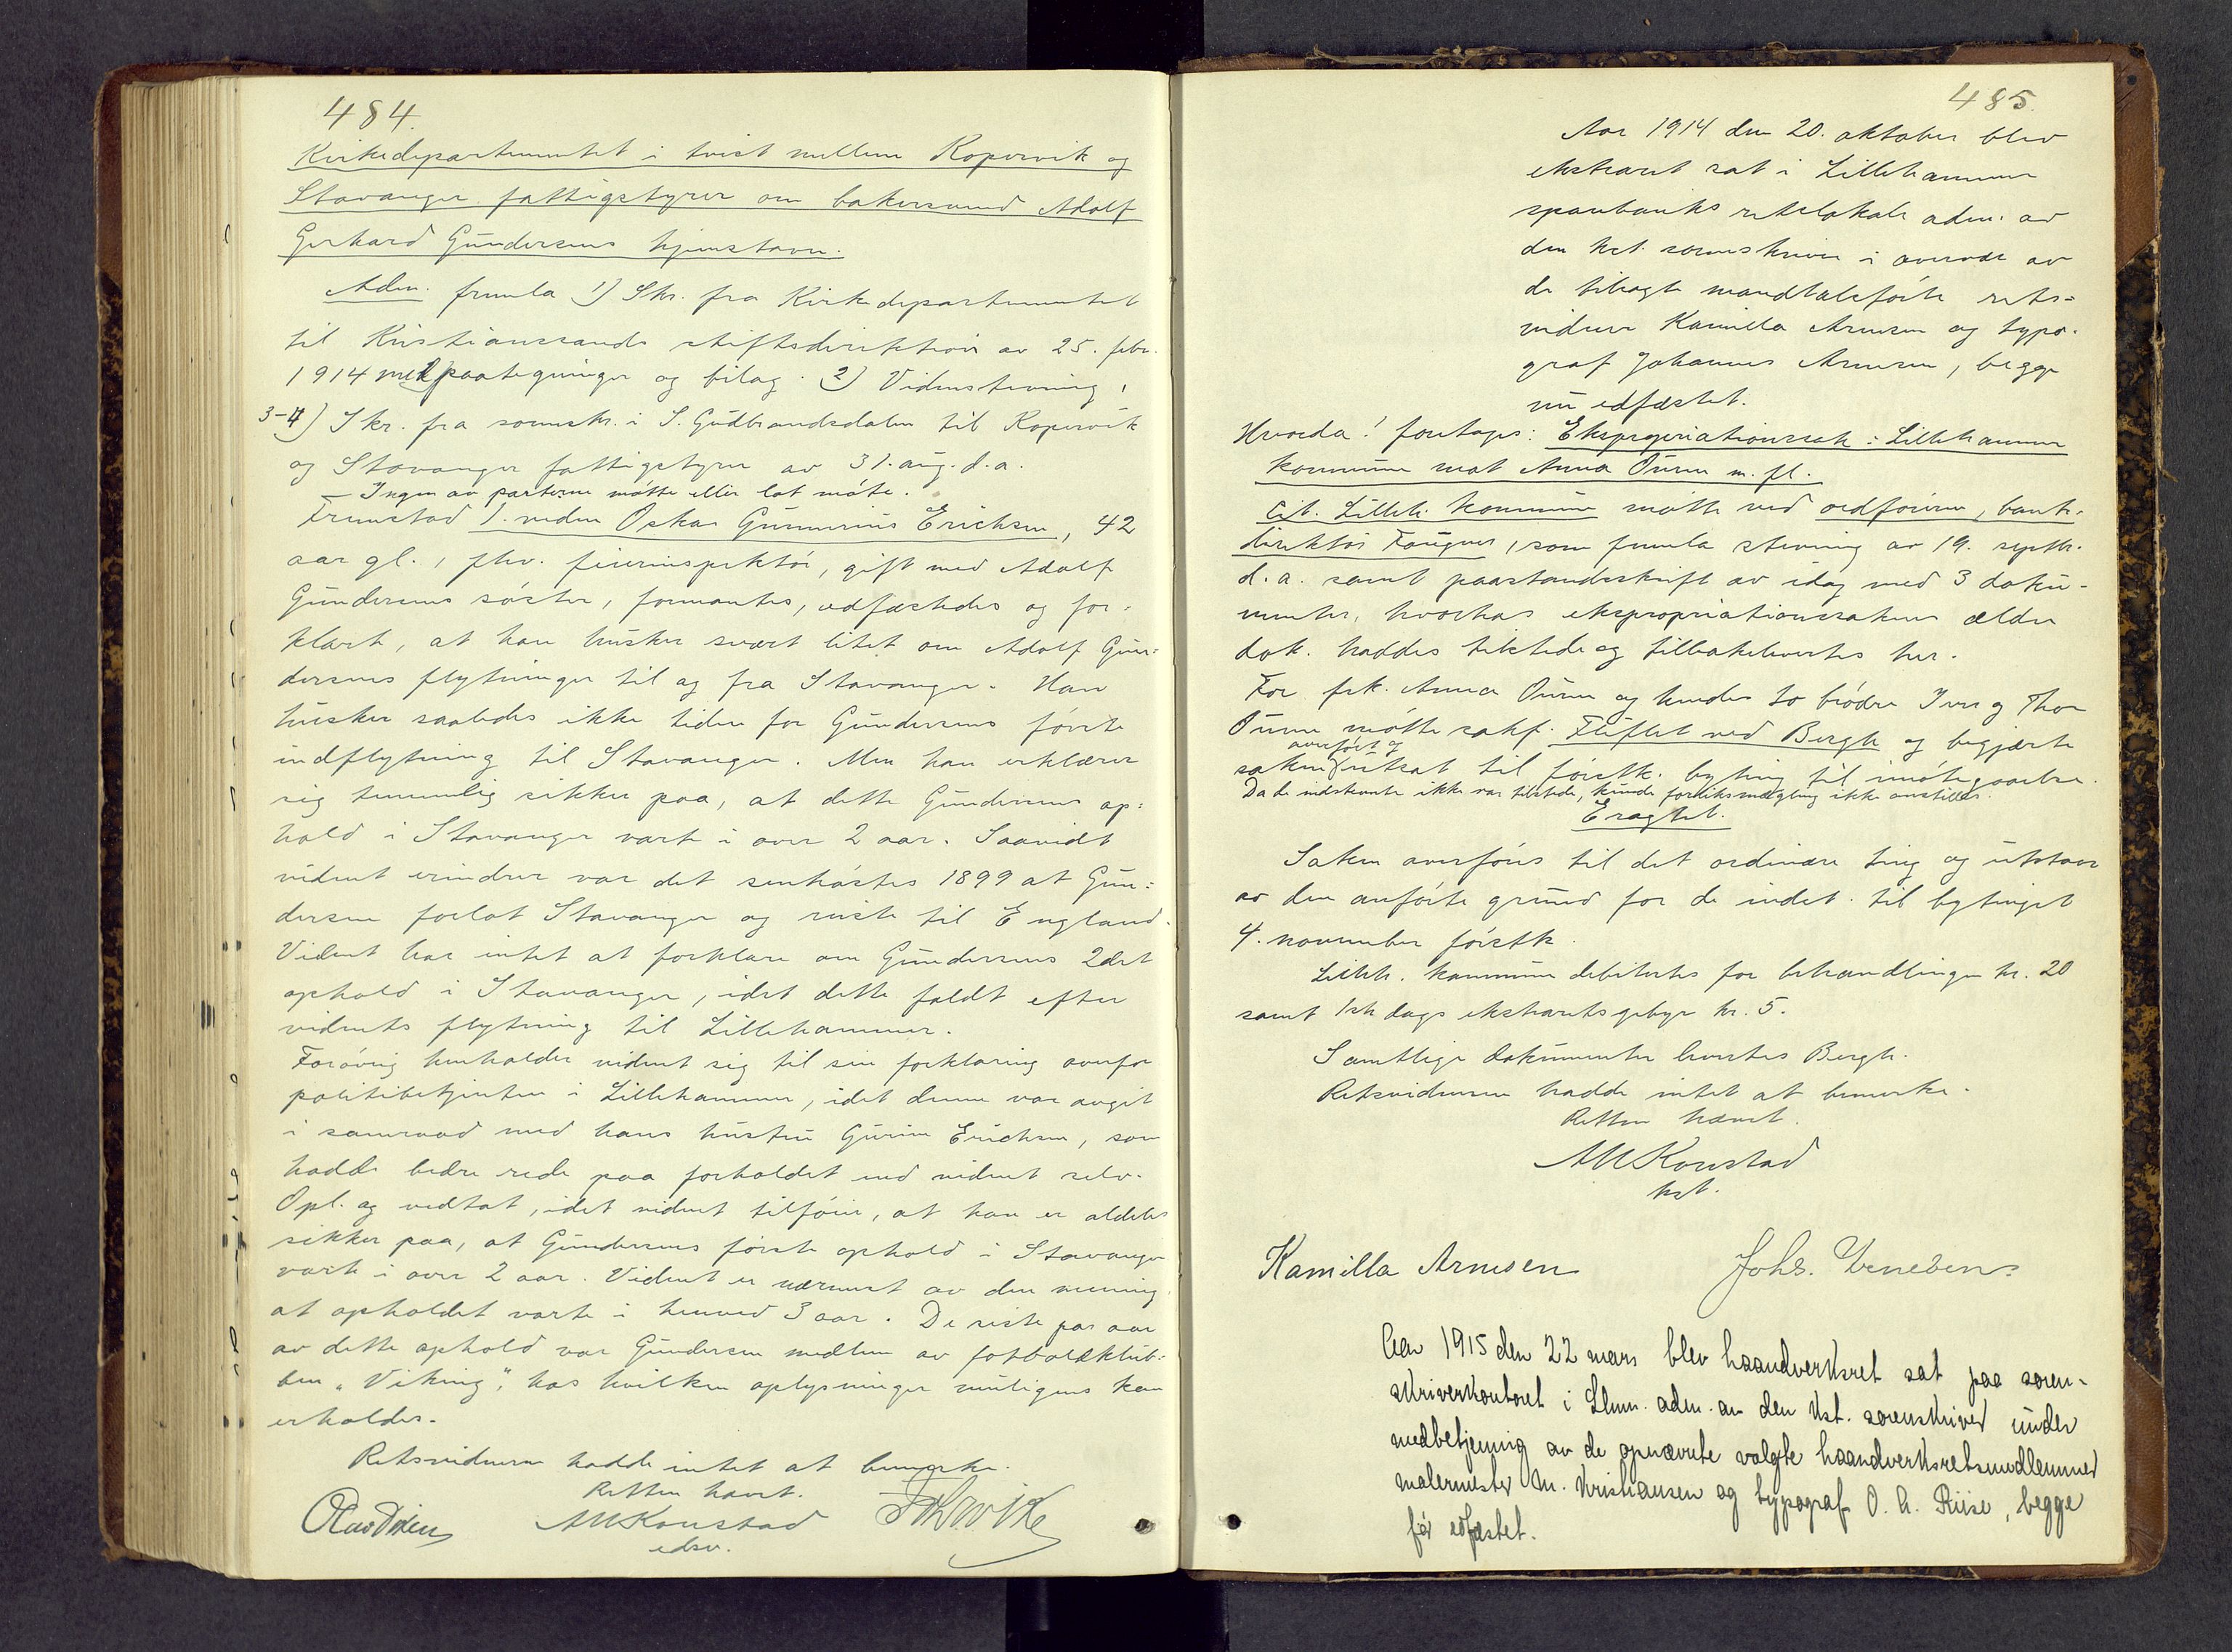 484.
Kirkedepartementet i tvist mellem Kopervik og
Stavanger fattigstyrer om bakersvend Adolf
Gerhard Gundersens hjemstavn.
Adm. fremla 1) Skr. fra Kirkedepartementet
til Kristianssands stiftsdirektion av 25. febr.
1914 med paategninger og bilag. 2) Vidnestevning,
3-4) Skr. fra sornskr. i S. Gudbrandsdalen til Kopervik
og Stavanger fattigstyrer av 31. aug. d.a.
- Ingen av parterne møtte eller lot møte.
Fremstod 1. vidne Oskar Gunnerius Erichsen, 42
aar gl., fhv. feierinspektør, gift med Adolf
Gundersens søster, formantes, edfæstedes og for-
klarte, at han husker svært litet om Adolf Gun-
dersens flytninger til og fra Stavanger. Han
husker saaledes ikke tiden for Gundersens første
indflytning til Stavanger. Men han erklærer
sig temmelig sikker paa, at dette Gundersens op-
hold i Stavanger varte i over 2 aar. Saavidt
vidnet erindrer var det senhøstes 1899 at Gun-
dersen forlot Stavanger og reiste til England.
Vidnet har intet at forklare om Gundersens 2det
ophold i Stavanger, idet dette faldt efter
vidnets flytning til Lillehammer.
Forøvrig henholder vidnet sig til sin forklaring overfor
politibetjenten i Lillehammer, idet denne var avgit
i samraad med hans hustru Gurine Erichsen, som
hadde bedre rede paa forholdet end vidnet selv.
Opl. og vedtat, idet vidnet tilføier, at han er aldeles
sikker paa, at Gundersens første ophold i Stavanger
varte i over 2 aar. Vidnet er nærmest av den mening
at opholdet varte i henved 3 aar. De siste par aar
av dette ophold var Gundersen medlem av fotboldklub-
ben "Viking", hos hvilken oplysninger muligens kan
erholdes.
Retsvidnerne hadde intet at bemerke.
Retten hævet.
AMKonstad
edsv.
485.
Aar 1914 den 20. oktober blev
ekstraret sat i Lillehammer
sparebanks retslokale adm. av
den kst. sorenskriver i overvær av
de tilsagte mandtalsførte rets-
vidner Kamilla Arnesen og typo-
graf Johannes Arnesen, begge
nu edfæstet.
Hvorda! foretages: Ekspropriationssak: Lillehammer
kommune mot Anna Ouren m. fl.
Cit. Lilleh. kommune møtte ved ordføreren, bank-
direktør Fougner, som fremla stevning av 19. septbr.
d.a. samt paastandsskrift av idag med 3 doku-
menter, hvorhos ekspropriationssakens ældre
dok. haddes tilstede og tilbakelevertes her.
For frk. Anna Ouren og hendes to brødre Iver og Thor
Ouren møtte sakf. Fliflet ved Bergh og begjærte
overført og
saken utsat til førstk. byting til imøtegaaelse.
Da de indstevnte ikke var tilstede, kunde forliksmægling ikke anstilles.
Eragtet.
Saken overføres til det ordinære ting og utstaar
av den anførte grund for de indst. til bytinget
4. november førstk.
Lilleh. kommune debitertes for behandlingen kr. 20
samt 1ste dags ekstraretsgebyr kr. 5.
Samtlige dokumenter levertes Bergh.
Retsvidnerne hadde intet at bemerke.
Retten hævet.
AMKonstad
kst.
Kamilla Arnesen Johs. Arnesen.
Aar 1915 den 22 mars blev haandverksret sat paa soren-
skriverkontoret i Lhmr. adm. av den kst. sorenskriver under
medbetjening av de opnævnte valgte haandverksretsmedlemmer
malermester M. Kristiansen og typograf O. A. Riise, begge
før edfæstet.